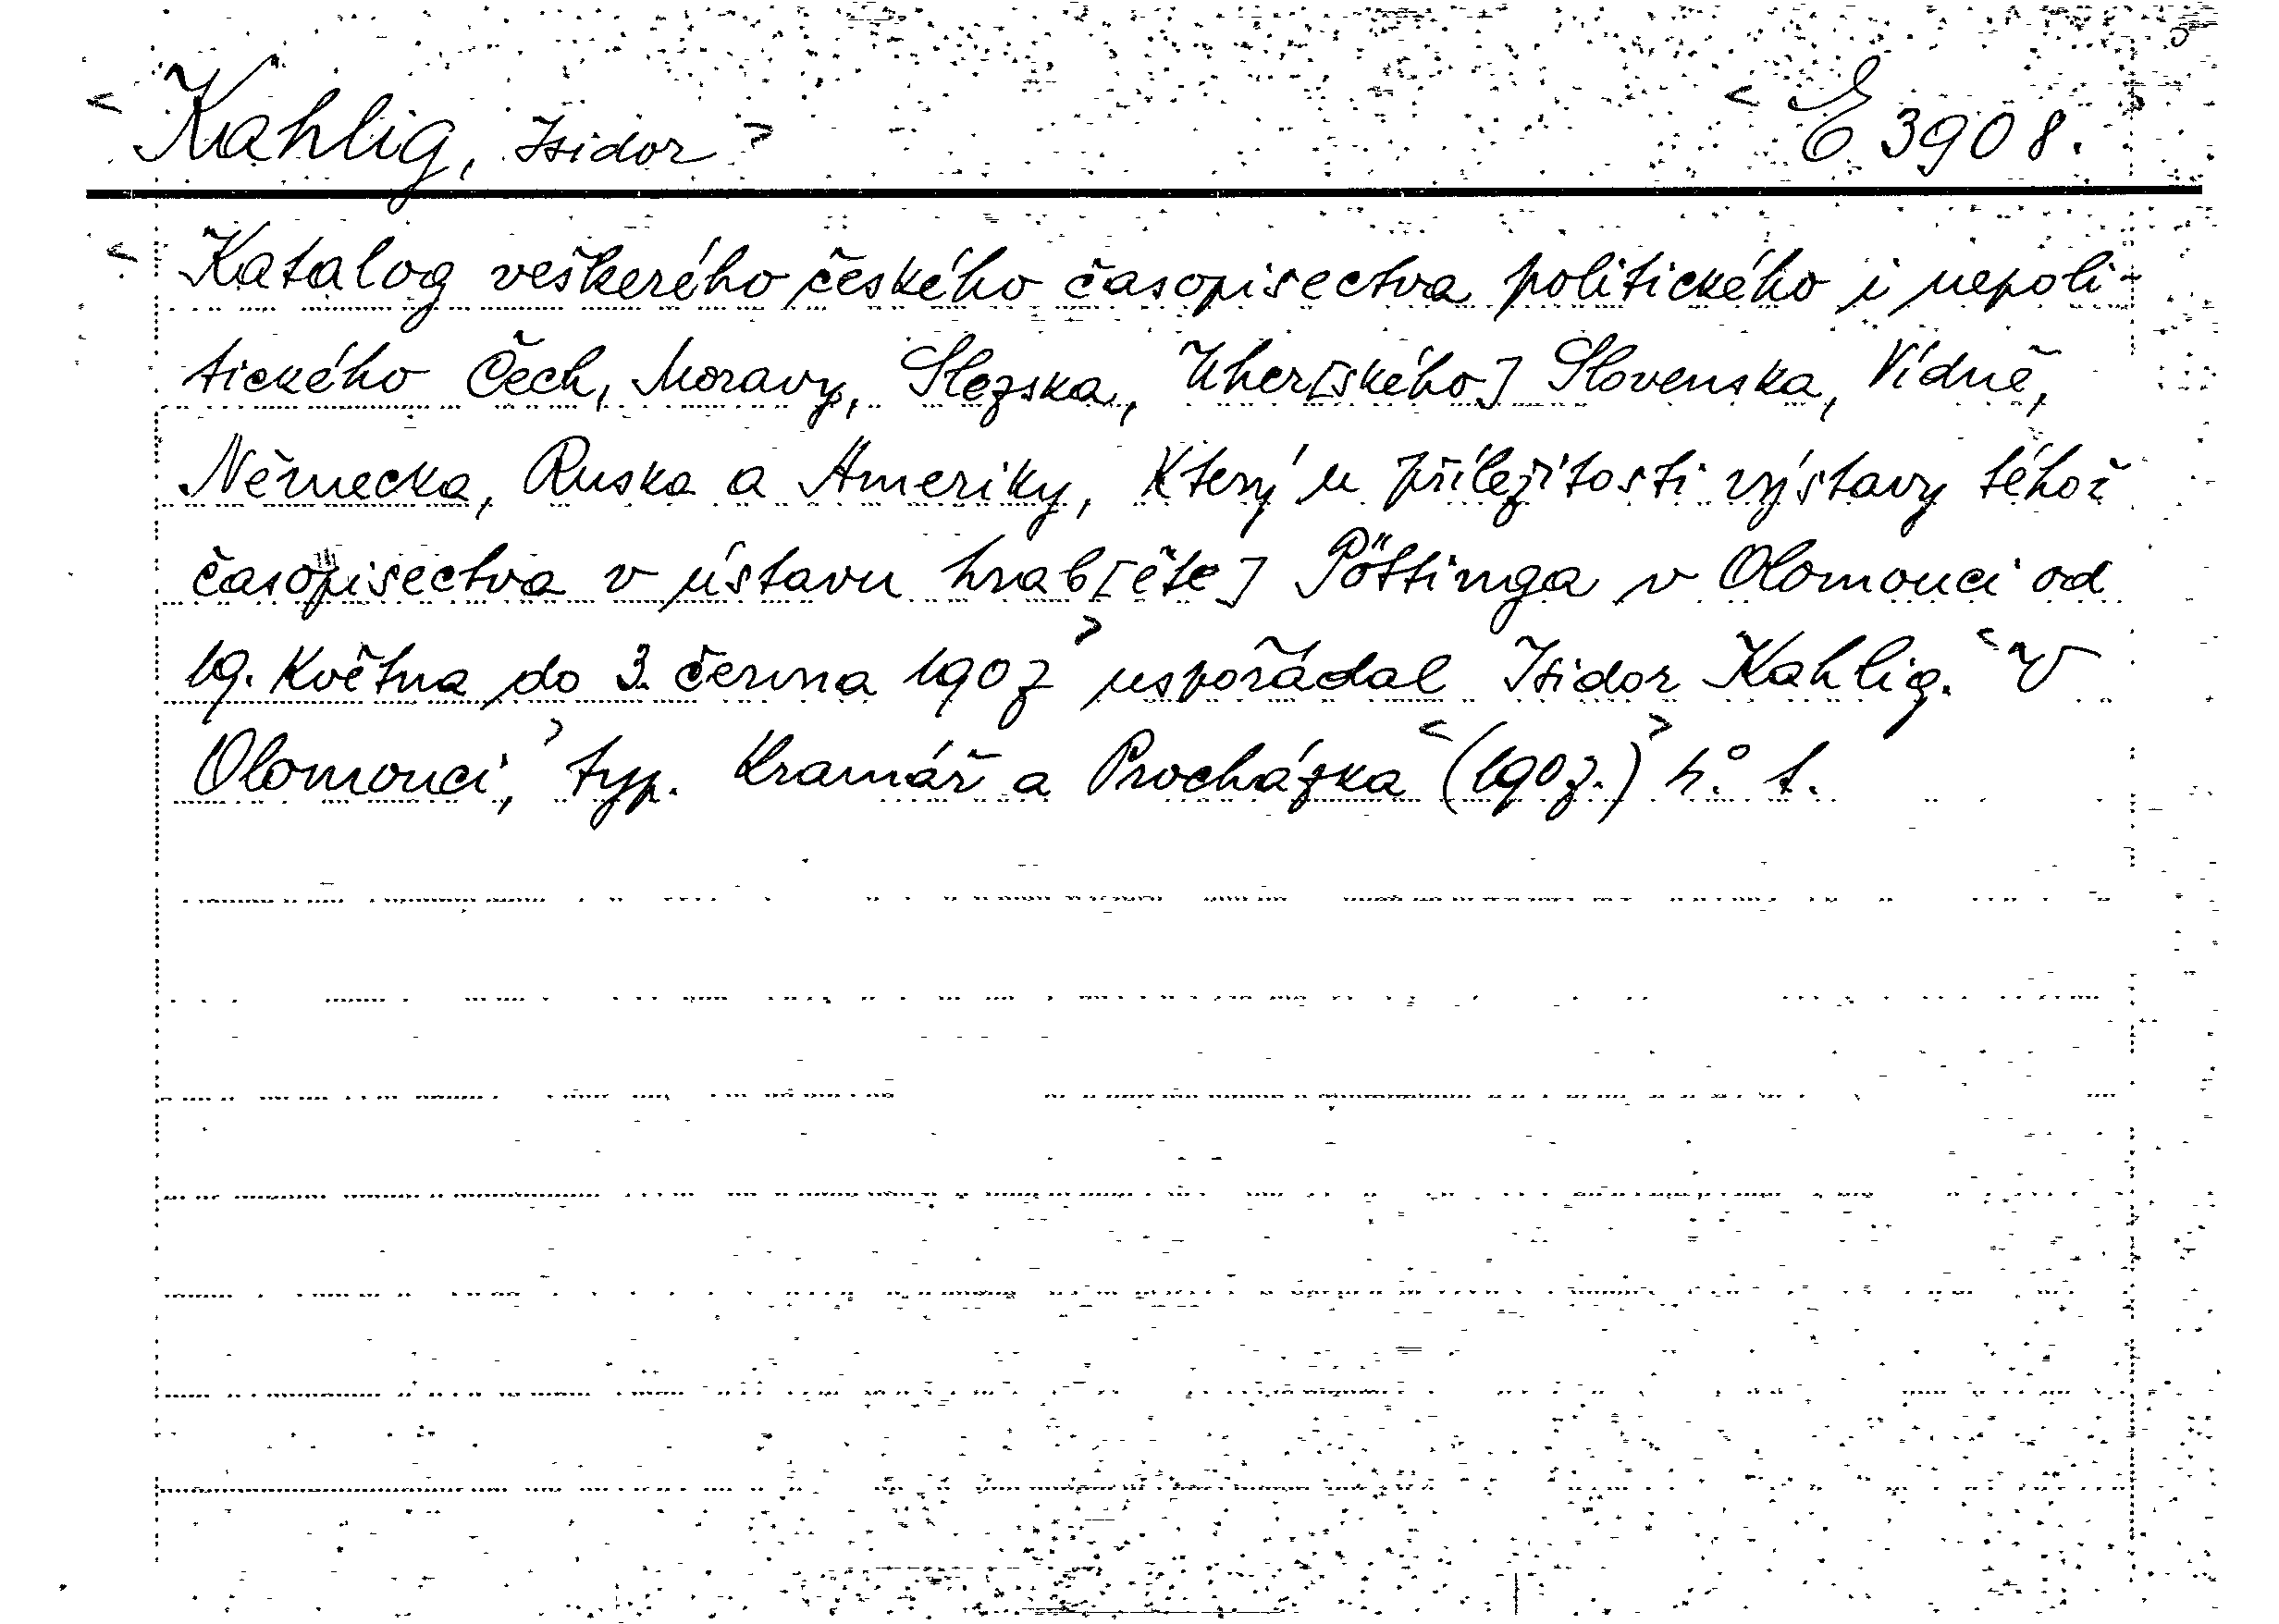 < Kahlig, Isidor > < E 3908.
< Katalog veškerého českého časopisectva politického i nepoli-
tického Čech, Moravy, Slezska, Uher[ského] Slovenska, Vídně,
Německa, Ruska a Ameriky, který u příležitosti výstavy téhož
časopisectva v ústavu hrab[ěte] Pöttinga v Olomouci od
19. května do 3. června 1907 > uspořádal Isidor Kahlig. < V
Olomouci, > typ. Kramář a Procházka < (1907.) > 4.° 1.